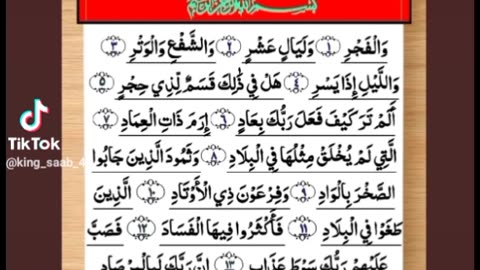 بِسْمِ اللهِ الرَّحْمٰنِ الرَّحِيْمِ
وَالْفَجْرِ ﴿١﴾ وَلَيَالٍ عَشْرٍ ﴿٢﴾ وَالشَّفْعِ وَالْوَتْرِ ﴿٣﴾
وَاللَّيْلِ إِذَا يَسْرِ ﴿٤﴾ هَلْ فِي ذَٰلِكَ قَسَمٌ لِّذِي حِجْرٍ ﴿٥﴾
أَلَمْ تَرَ كَيْفَ فَعَلَ رَبُّكَ بِعَادٍ ﴿٦﴾ إِرَمَ ذَاتِ الْعِمَادِ ﴿٧﴾
الَّتِي لَمْ يُخْلَقْ مِثْلُهَا فِي الْبِلَادِ ﴿٨﴾ وَثَمُودَ الَّذِينَ جَابُوا
الصَّخْرَ بِالْوَادِ ﴿٩﴾ وَفِرْعَوْنَ ذِي الْأَوْتَادِ ﴿١٠﴾ الَّذِينَ
طَغَوْا فِي الْبِلَادِ ﴿١١﴾ فَأَكْثَرُوا فِيهَا الْفَسَادَ ﴿١٢﴾ فَصَبَّ
عَلَيْهِمْ رَبُّكَ سَوْطَ عَذَابٍ ﴿١٣﴾ إِنَّ رَبَّكَ لَبِالْمِرْصَادِ
TikTok
@king_saab_4